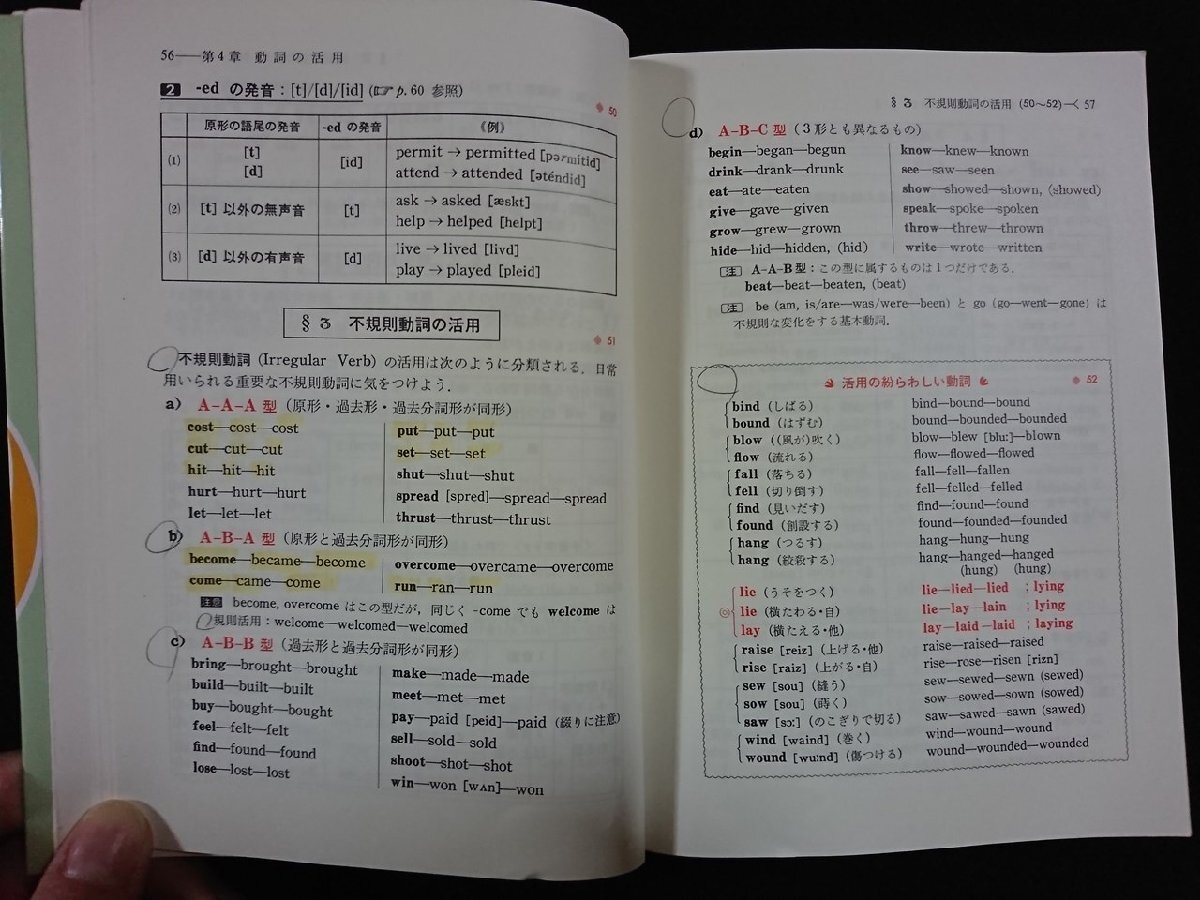 56——第4章 動詞の活用
2 -ed の発音：[t]/[d]/[id] (☞ p. 60 参照)
50
原形の語尾の発音 -ed の発音 《例》
(1) [t] [id] permit → permitted [pərmítid]
[d] attend → attended [əténdid]
(2) [t] 以外の無声音 [t] ask → asked [æskt]
help → helped [helpt]
(3) [d] 以外の有声音 [d] live → lived [livd]
play → played [pleid]
§ 3 不規則動詞の活用
51
不規則動詞 (Irregular Verb) の活用は次のように分類される. 日常
用いられる重要な不規則動詞に気をつけよう.
a) A–A–A 型 (原形・過去形・過去分詞形が同形)
cost—cost—cost
cut—cut—cut
hit—hit—hit
hurt—hurt—hurt
let—let—let
put—put—put
set—set—set
shut—shut—shut
spread [spred]—spread—spread
thrust—thrust—thrust
b) A–B–A 型 (原形と過去分詞形が同形)
become—became—become
come—came—come
overcome—overcame—overcome
run—ran—run
注意 become, overcome はこの型だが, 同じく -come でも welcome は
規則活用：welcome—welcomed—welcomed
c) A–B–B 型 (過去形と過去分詞形が同形)
bring—brought—brought
build—built—built
buy—bought—bought
feel—felt—felt
find—found—found
lose—lost—lost
make—made—made
meet—met—met
pay—paid [peid]—paid (綴りに注意)
sell—sold—sold
shoot—shot—shot
win—won [wʌn]—won
§ 3 不規則動詞の活用 (50～52)—く 57
d) A–B–C 型 (3形とも異なるもの)
begin—began—begun
drink—drank—drunk
eat—ate—eaten
give—gave—given
grow—grew—grown
hide—hid—hidden, (hid)
know—knew—known
see—saw—seen
show—showed—shown, (showed)
speak—spoke—spoken
throw—threw—thrown
write—wrote—written
注 A–A–B 型：この型に属するものは1つだけである.
beat—beat—beaten, (beat)
注 be (am, is/are—was/were—been) と go (go—went—gone) は
不規則な変化をする基本動詞.
活用の紛らわしい動詞
52
bind (しばる) bind—bound—bound
bound (はずむ) bound—bounded—bounded
blow ((風が)吹く) blow—blew [blu:]—blown
flow (流れる) flow—flowed—flowed
fall (落ちる) fall—fell—fallen
fell (切り倒す) fell—felled—felled
find (見いだす) find—found—found
found (創設する) found—founded—founded
hang (つるす) hang—hung—hung
hang (絞殺する) hang—hanged—hanged
(hung) (hung)
lie (うそをつく) lie—lied—lied ; lying
lie (横たわる・自) lie—lay—lain ; lying
lay (横たえる・他) lay—laid—laid ; laying
raise [reiz] (上げる・他) raise—raised—raised
rise [raiz] (上がる・自) rise—rose—risen [rizn]
sew [sou] (縫う) sew—sewed—sewn (sewed)
sow [sou] (蒔く) sow—sowed—sown (sowed)
saw [sɔ:] (のこぎりで切る) saw—sawed—sawn (sawed)
wind [waind] (巻く) wind—wound—wound
wound [wu:nd] (傷つける) wound—wounded—wounded